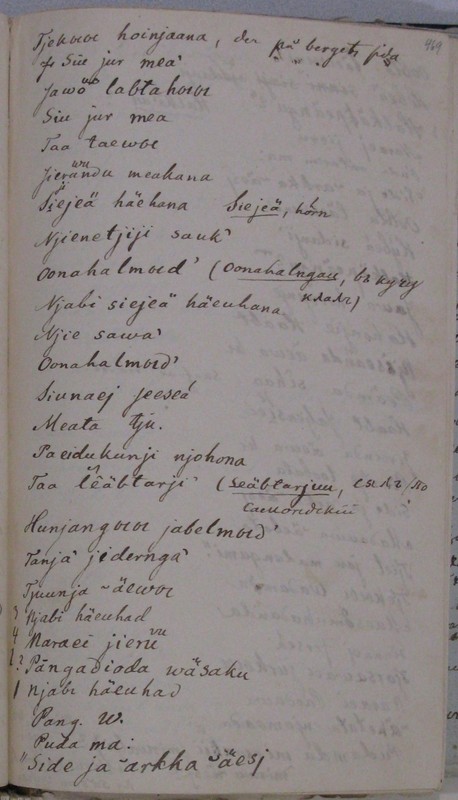 969
Tjekou hoinjaana, der på bergets sida
Siu jur mea'
Jawö labtahou
Siu jur mea
Taa taewou
Jieründu meakana
Siejeä häehana Siejeä, hörn
Njienetjiji sauk'
Oonahalmoid' (Oonahalngau, въ кучу
клалъ)
Njabi siejeä häeuhana
Njie sawa'
Oonahalmoid'
Siunaej jeeseá
Meata tju.
Paeidukunji njohona
Taa leäbtarji' (Seäbtarjuu,
Самоэдскій
Hunjangou jabelmoid'
Tanjä jiderngä
Tjuunja äewou
3 Njabi häeuhad
4 Naraei jierü
2? Pángadioda wäsaku
1 Njabi häeuhad
Pang. W.
Puda ma:
"Side ja arkka äesj